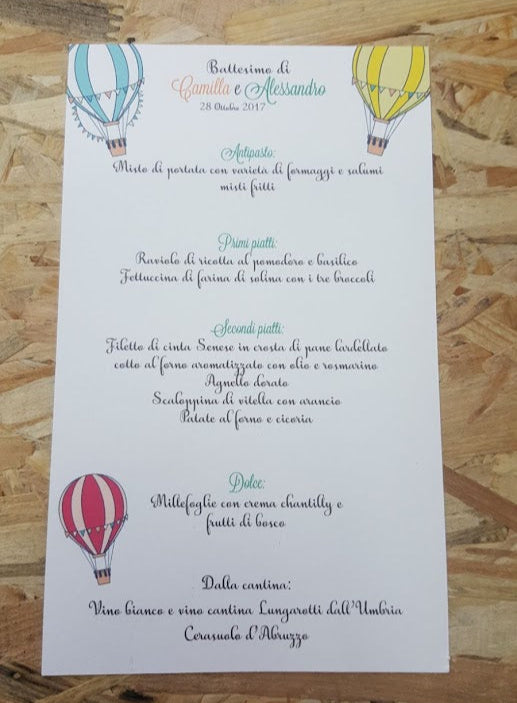 Battesimo di
Camilla e Alessandro
28 Ottobre 2017
Antipasto:
Misto di portata con varietà di formaggi e salumi
misti fritti
Primi piatti:
Raviolo di ricotta al pomodoro e basilico
Fettuccina di farina di solina con i tre broccoli
Secondi piatti:
Filetto di cinta Senese in crosta di pane lardellato
cotto al forno aromatizzato con olio e rosmarino
Agnello dorato
Scaloppina di vitella con arancio
Patate al forno e cicoria
Dolce:
Millefoglie con crema chantilly e
frutti di bosco
Dalla cantina:
Vino bianco e vino cantina Lungarotti dall'Umbria
Cerasuolo d'Abruzzo